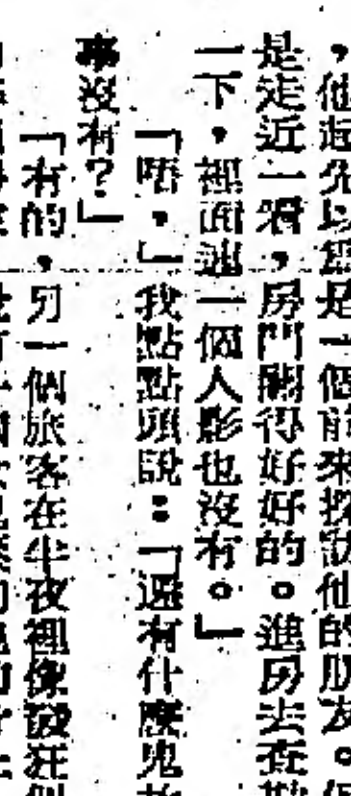 ，他起先以為是一個前來探訪他的朋友。但
是走近一看，房門關得好好的。進房去查勘
一下，裡面連一個人影也沒有。」
「唔，」我點點頭說：「還有什麼鬼故
事沒有？」
「有的，另一個旅客在半夜裡像發狂似